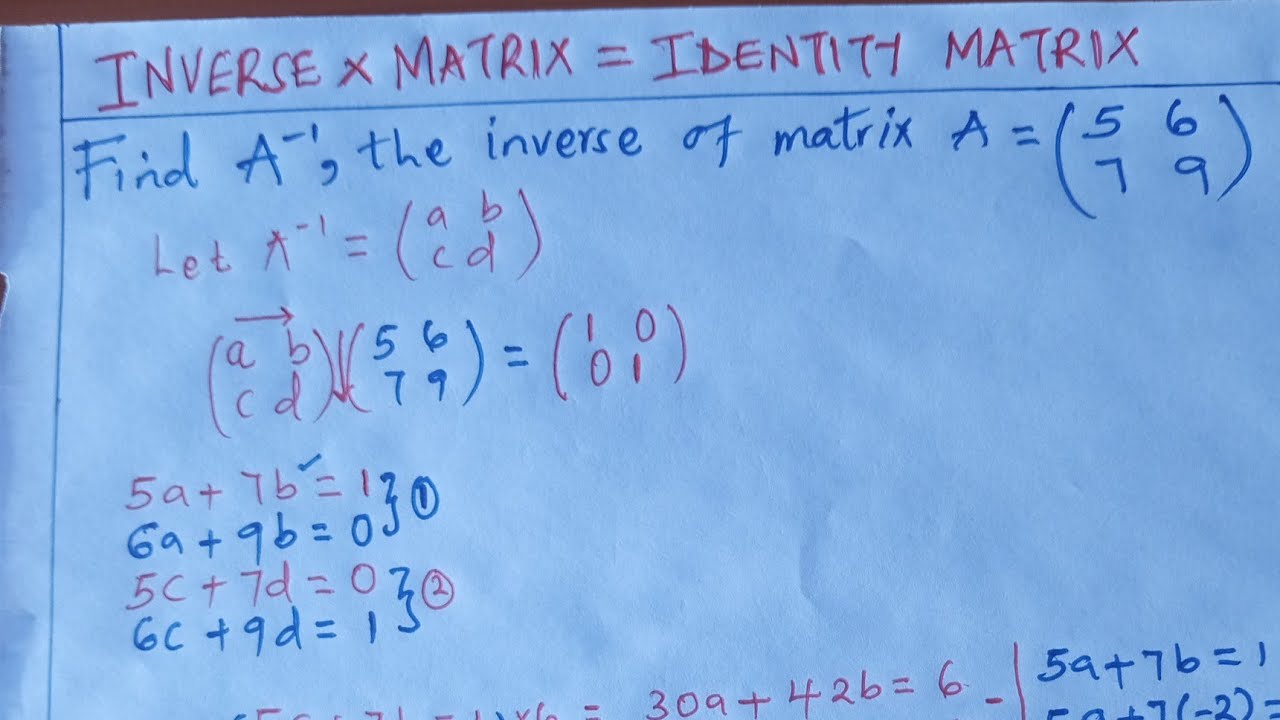 INVERSE × MATRIX = IDENTITY MATRIX
Find A⁻¹, the inverse of matrix A = (5 6
7 9)
Let A⁻¹ = (a b
c d)
(a b
c d)(5 6
7 9) = (1 0
0 1)
5a + 7b = 1 } ①
6a + 9b = 0
5c + 7d = 0 } ②
6c + 9d = 1
30a + 42b = 6 -
5a + 7b = 1
5a + 7(-2) =